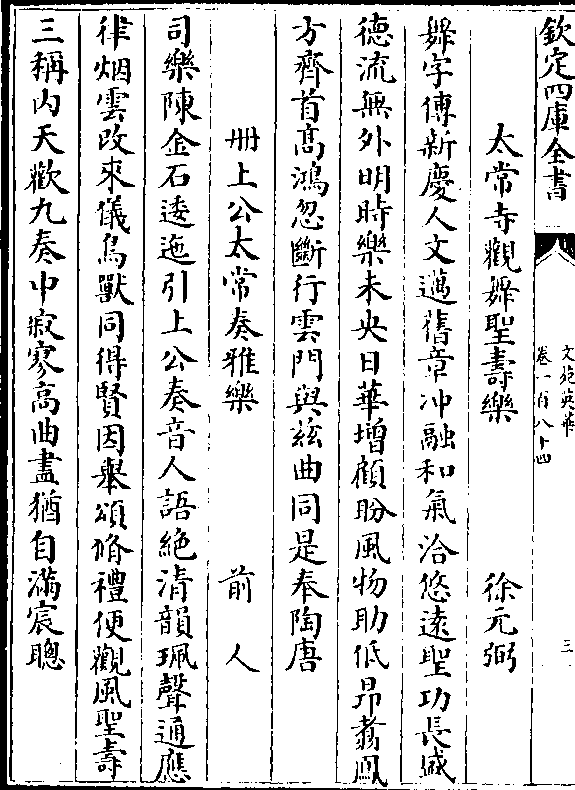 欽定四庫全書
文苑英華
卷一百八十四
三
太常寺觀舞聖壽樂 徐元弼
舞字傳新慶人文邁舊章冲融和氣洽悠遠聖功長盛
德流無外明時樂未央日華增顧盼風物助低昂翥鳳
方齊首高鴻忽斷行雲門與兹曲同是奉陶唐
冊上公太常奏雅樂 前人
司樂陳金石逶迤引上公奏音人語絶清韻珮聲通應
律烟雲改來儀鳥獸同得賢因舉頌脩禮便觀風聖壽
三稱内天歡九奏中寂寥高曲盡猶自滿宸聰